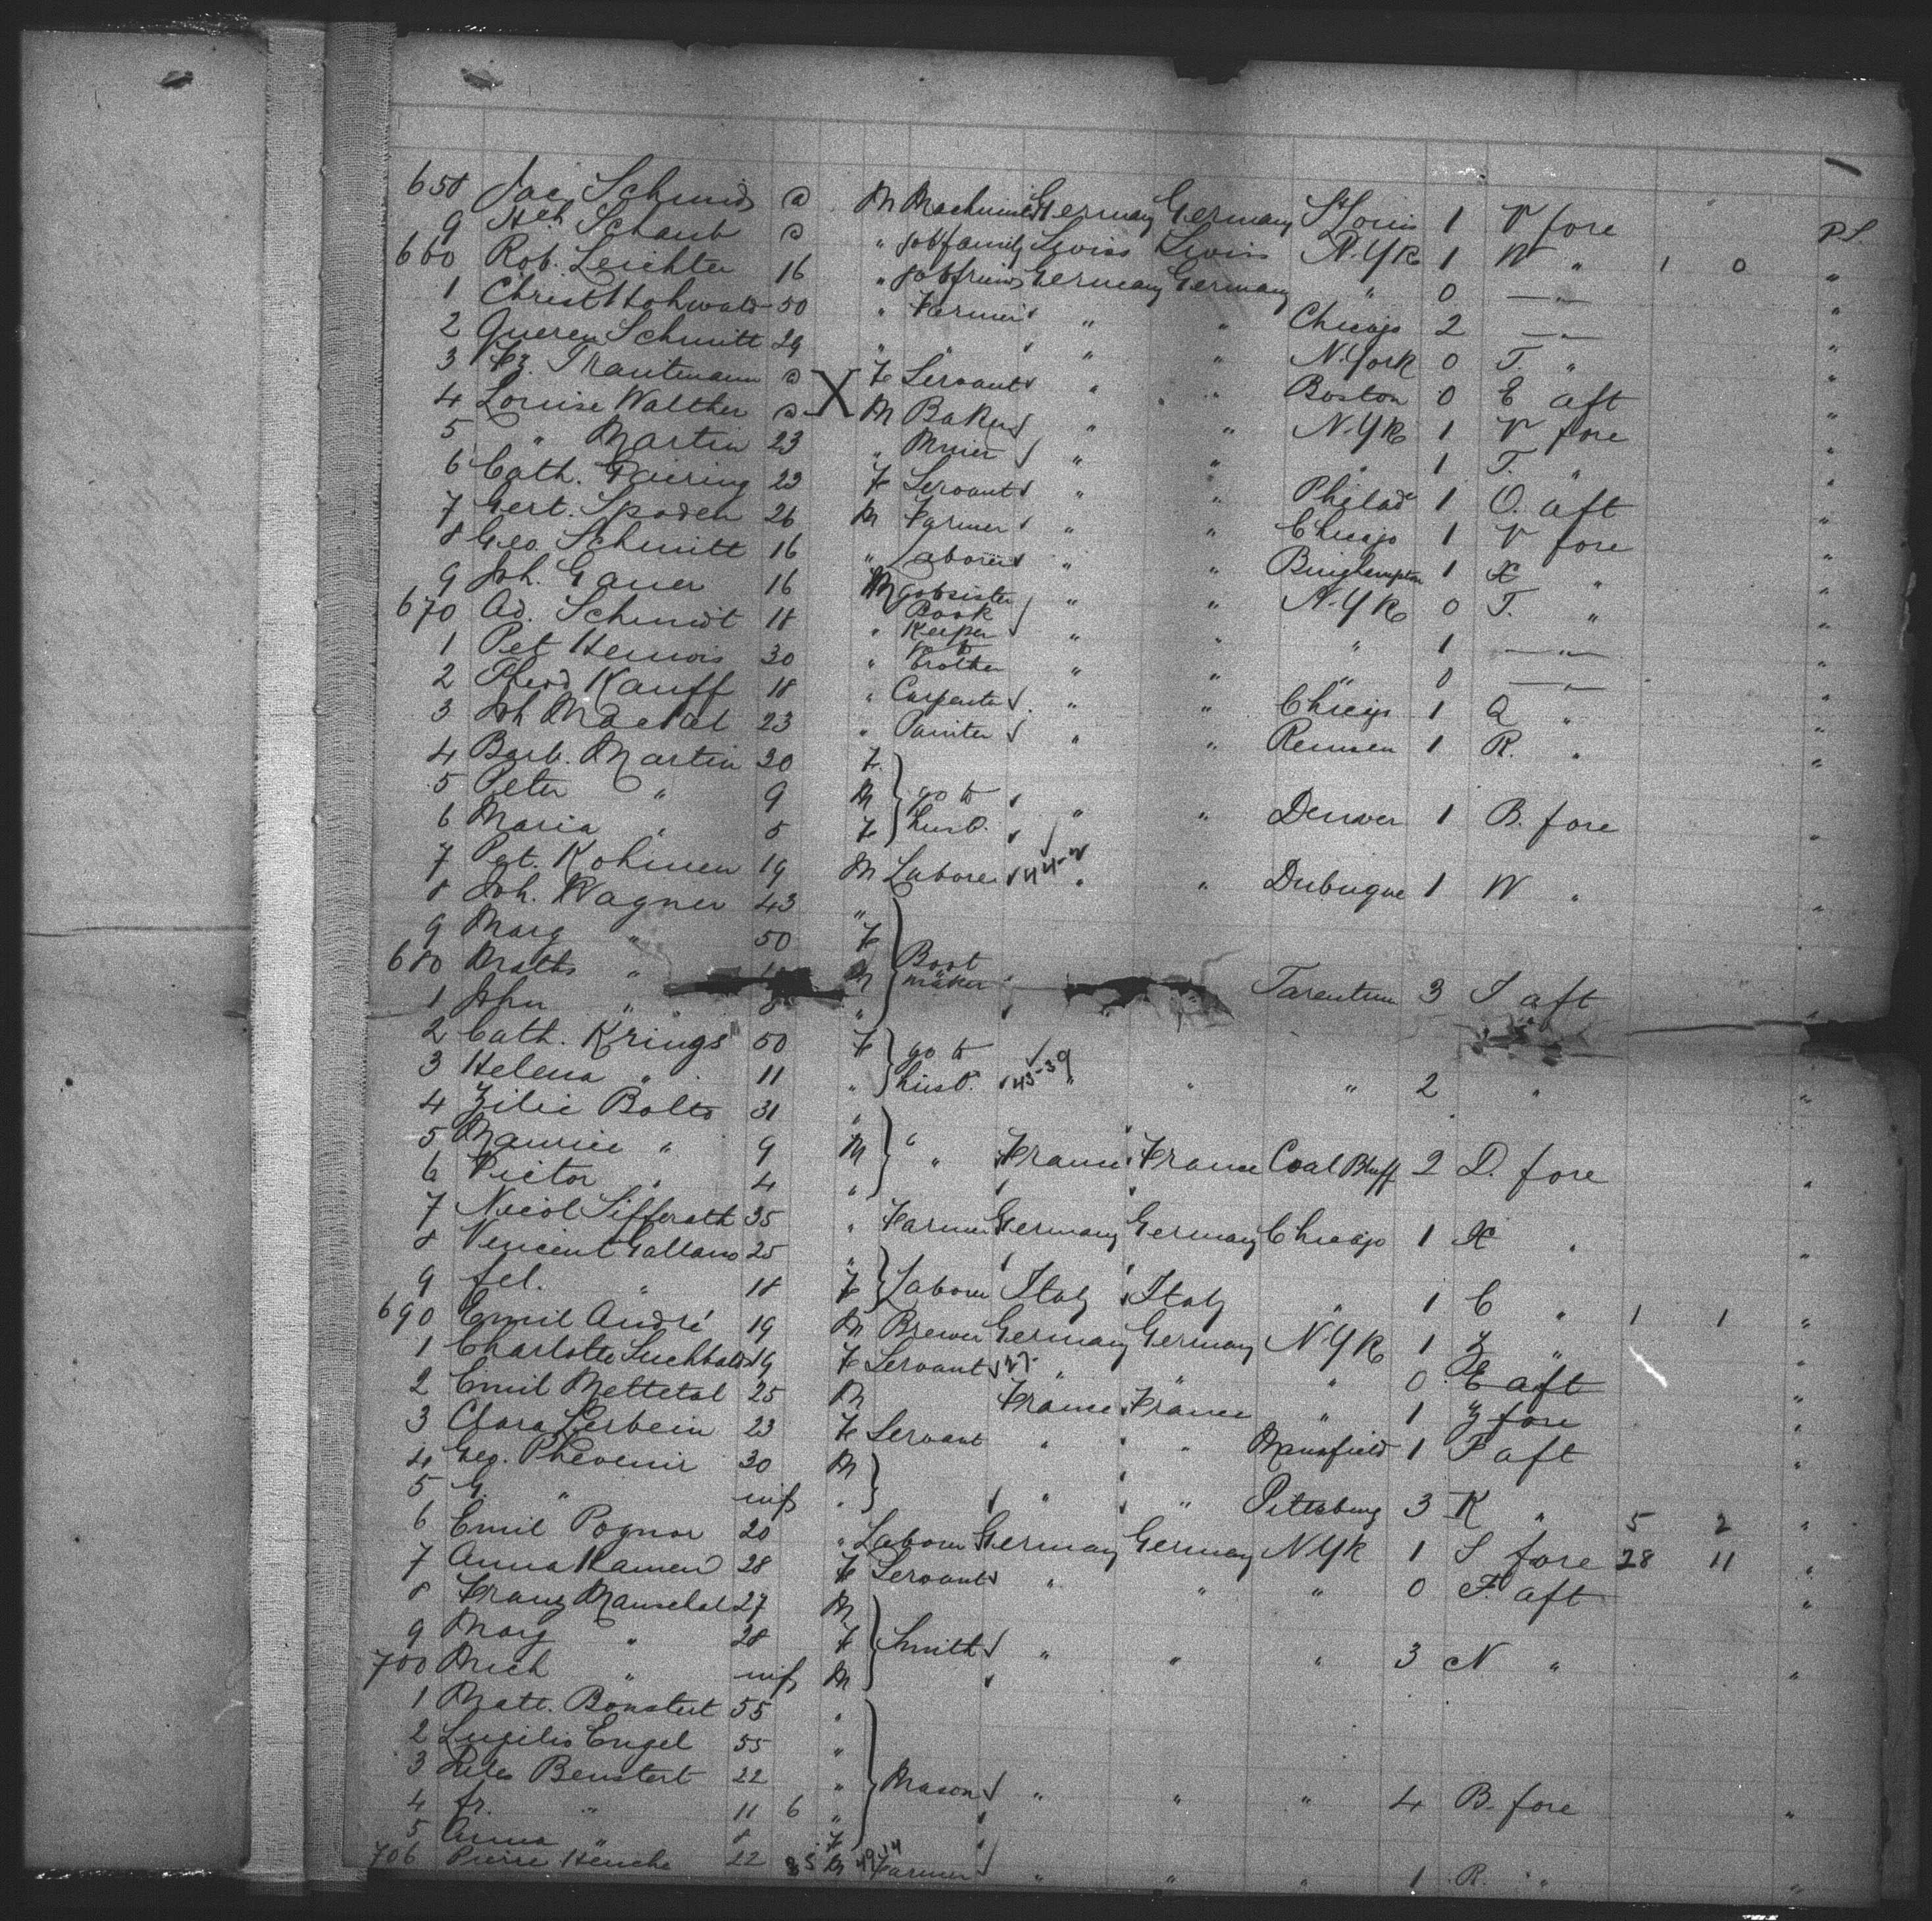 658 Jac. Schmid a M Machinist Germany Germany St Louis 1 V fore P.L.
9 Hch Schaub a " go to family Swiss Swiss N.Yk 1 W " 1 0 "
660 Rob. Leichter 16 " go to friends Germany Germany " 0 — " — "
1 Christ Hohwald 50 " Farmer " " Chicago 2 — " — "
2 Schmitt 29 " " " " N. York 0 T. " "
3 Fz. Trautmann a X F Servant " " Boston 0 E aft "
4 Louise Walther a M Baker " " N.Yk 1 V fore "
5 " Martin 23 " Miner " " " 1 T. " "
6 Cath. 23 F Servant " " Philad 1 O. aft "
7 Gert. Spoden 26 M Farmer " " Chicago 1 V fore "
8 Geo. Schmitt 16 " Laborer " " Binghampton 1 X " "
9 Joh. Gauer 16 M go to sister " " N.Yk 0 T. " "
670 Ad. Schmidt 18 " Book Keeper " " " 1 — " — "
1 Pet 30 " go to brother " " " 0 — " — "
2 Theod Kauff 18 " Carpenter " " Chicago 1 Q " "
3 Joh 23 " Painter " " Remsen 1 R. " "
4 Barb. Martin 30 F
5 Peter " 9 M go to husb. " " Denver 1 B. fore "
6 Maria " 5 F
7 Pet. Kohmen 19 M Laborer 44-2 " " Dubuque 1 W " "
8 Joh. Wagner 43 "
9 Marg " 50 F
680 Maths " M Boot maker Tarentum 3 S aft "
1 John " "
2 Cath. Krings 50 F go to
3 Helena " 11 " husb. 43-39 " " " 2 " "
4 Zilie Bolts 31 "
5 Maurice " 9 M " " France France Coal Bluff 2 D. fore "
6 Victor " 4 "
7 Nicol Sifferath 35 " Farmer Germany Germany Chicago 1 X " "
8 Vencient Gallano 25 "
9 fel. " 18 F Laborer Italy Italy " 1 C " 1 1 "
690 Emil André 19 M Brewer Germany Germany N.Yk 1 Z " "
1 Charlotte 19 F Servant 27. " " " 0 E aft "
2 Emil Mettetal 25 M France France " 1 Z fore "
3 Clara Lerbein 23 F Servant " " Mansfield 1 F aft "
4 Geo. Thevenir 30 M
5 G. " inf " " " Pittsburg 3 K " 5 2 "
6 Emil Pognor 20 " Laborer Germany Germany N.Yk 1 S fore 28 11 "
7 Anna Kamen 28 F Servant " " " 0 F. aft "
8 Franz Manschal 27 M
9 Marg " 28 F Smith " " " 3 N " "
700 Mich " inf M
1 Matt. Bonstert 55 "
2 Engel 55 "
3 Benstert 22 " Mason " " " 4 B. fore "
4 fr. " 11 6 "
5 Anna " 8 F
706 Pierre 22 35 M 49 14 Farmer " " " 1 R. " "